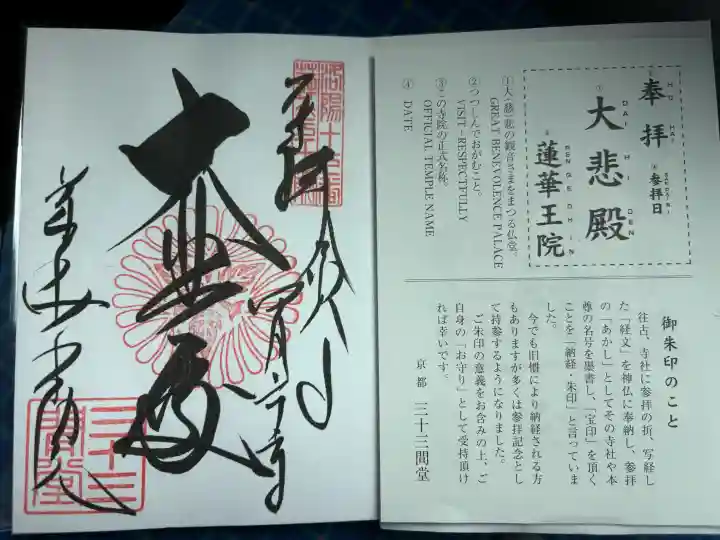 奉拝
大悲殿
三十三
間堂
奉拝
HO HAI
④参拝日
SANPAIBI
①
大悲殿
DAI HI DEN
蓮華王院
RENGEOHIN
①大(慈)悲の観音さまをまつる仏堂。
GREAT BENEVOLENCE PALACE
②つつしんでおがむこと。
VISIT-RESPECTFULLY
③この寺院の正式名称。
OFFICIAL TEMPLE NAME
④ DATE
御朱印のこと
往古、寺社に参拝の折、写経し
た「経文」を神仏に奉納し、参拝
の「あかし」としてその寺社や本
尊の名号を墨書し、「宝印」を頂く
ことを「納経・朱印」と言っていま
した。
今でも旧慣により納経される方
もありますが多くは参拝記念とし
て持参するようになりました。
ご朱印の意義をお含みの上、ご
自身の「お守り」として受持頂け
れば幸いです。
京都 三十三間堂